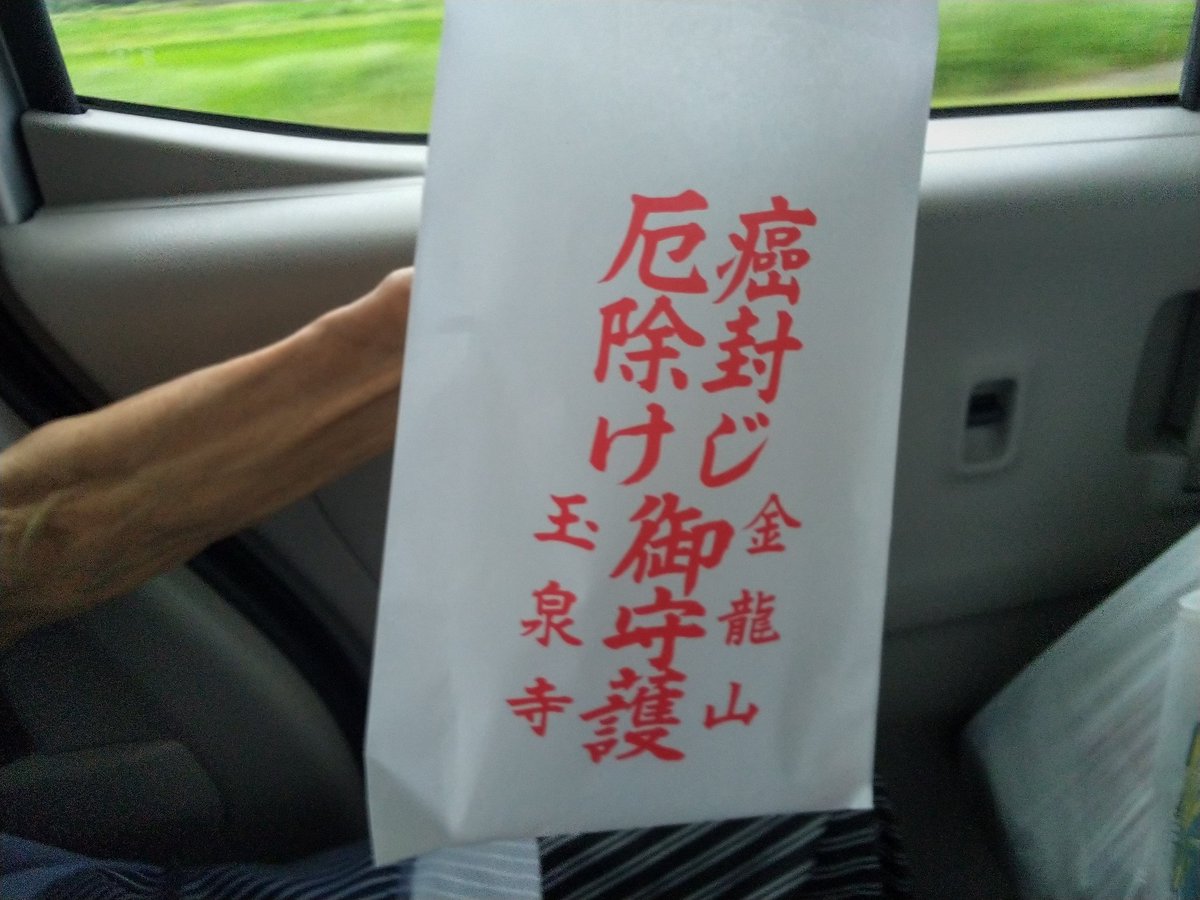 癌封じ
厄除け
御守護
金龍山
玉泉寺